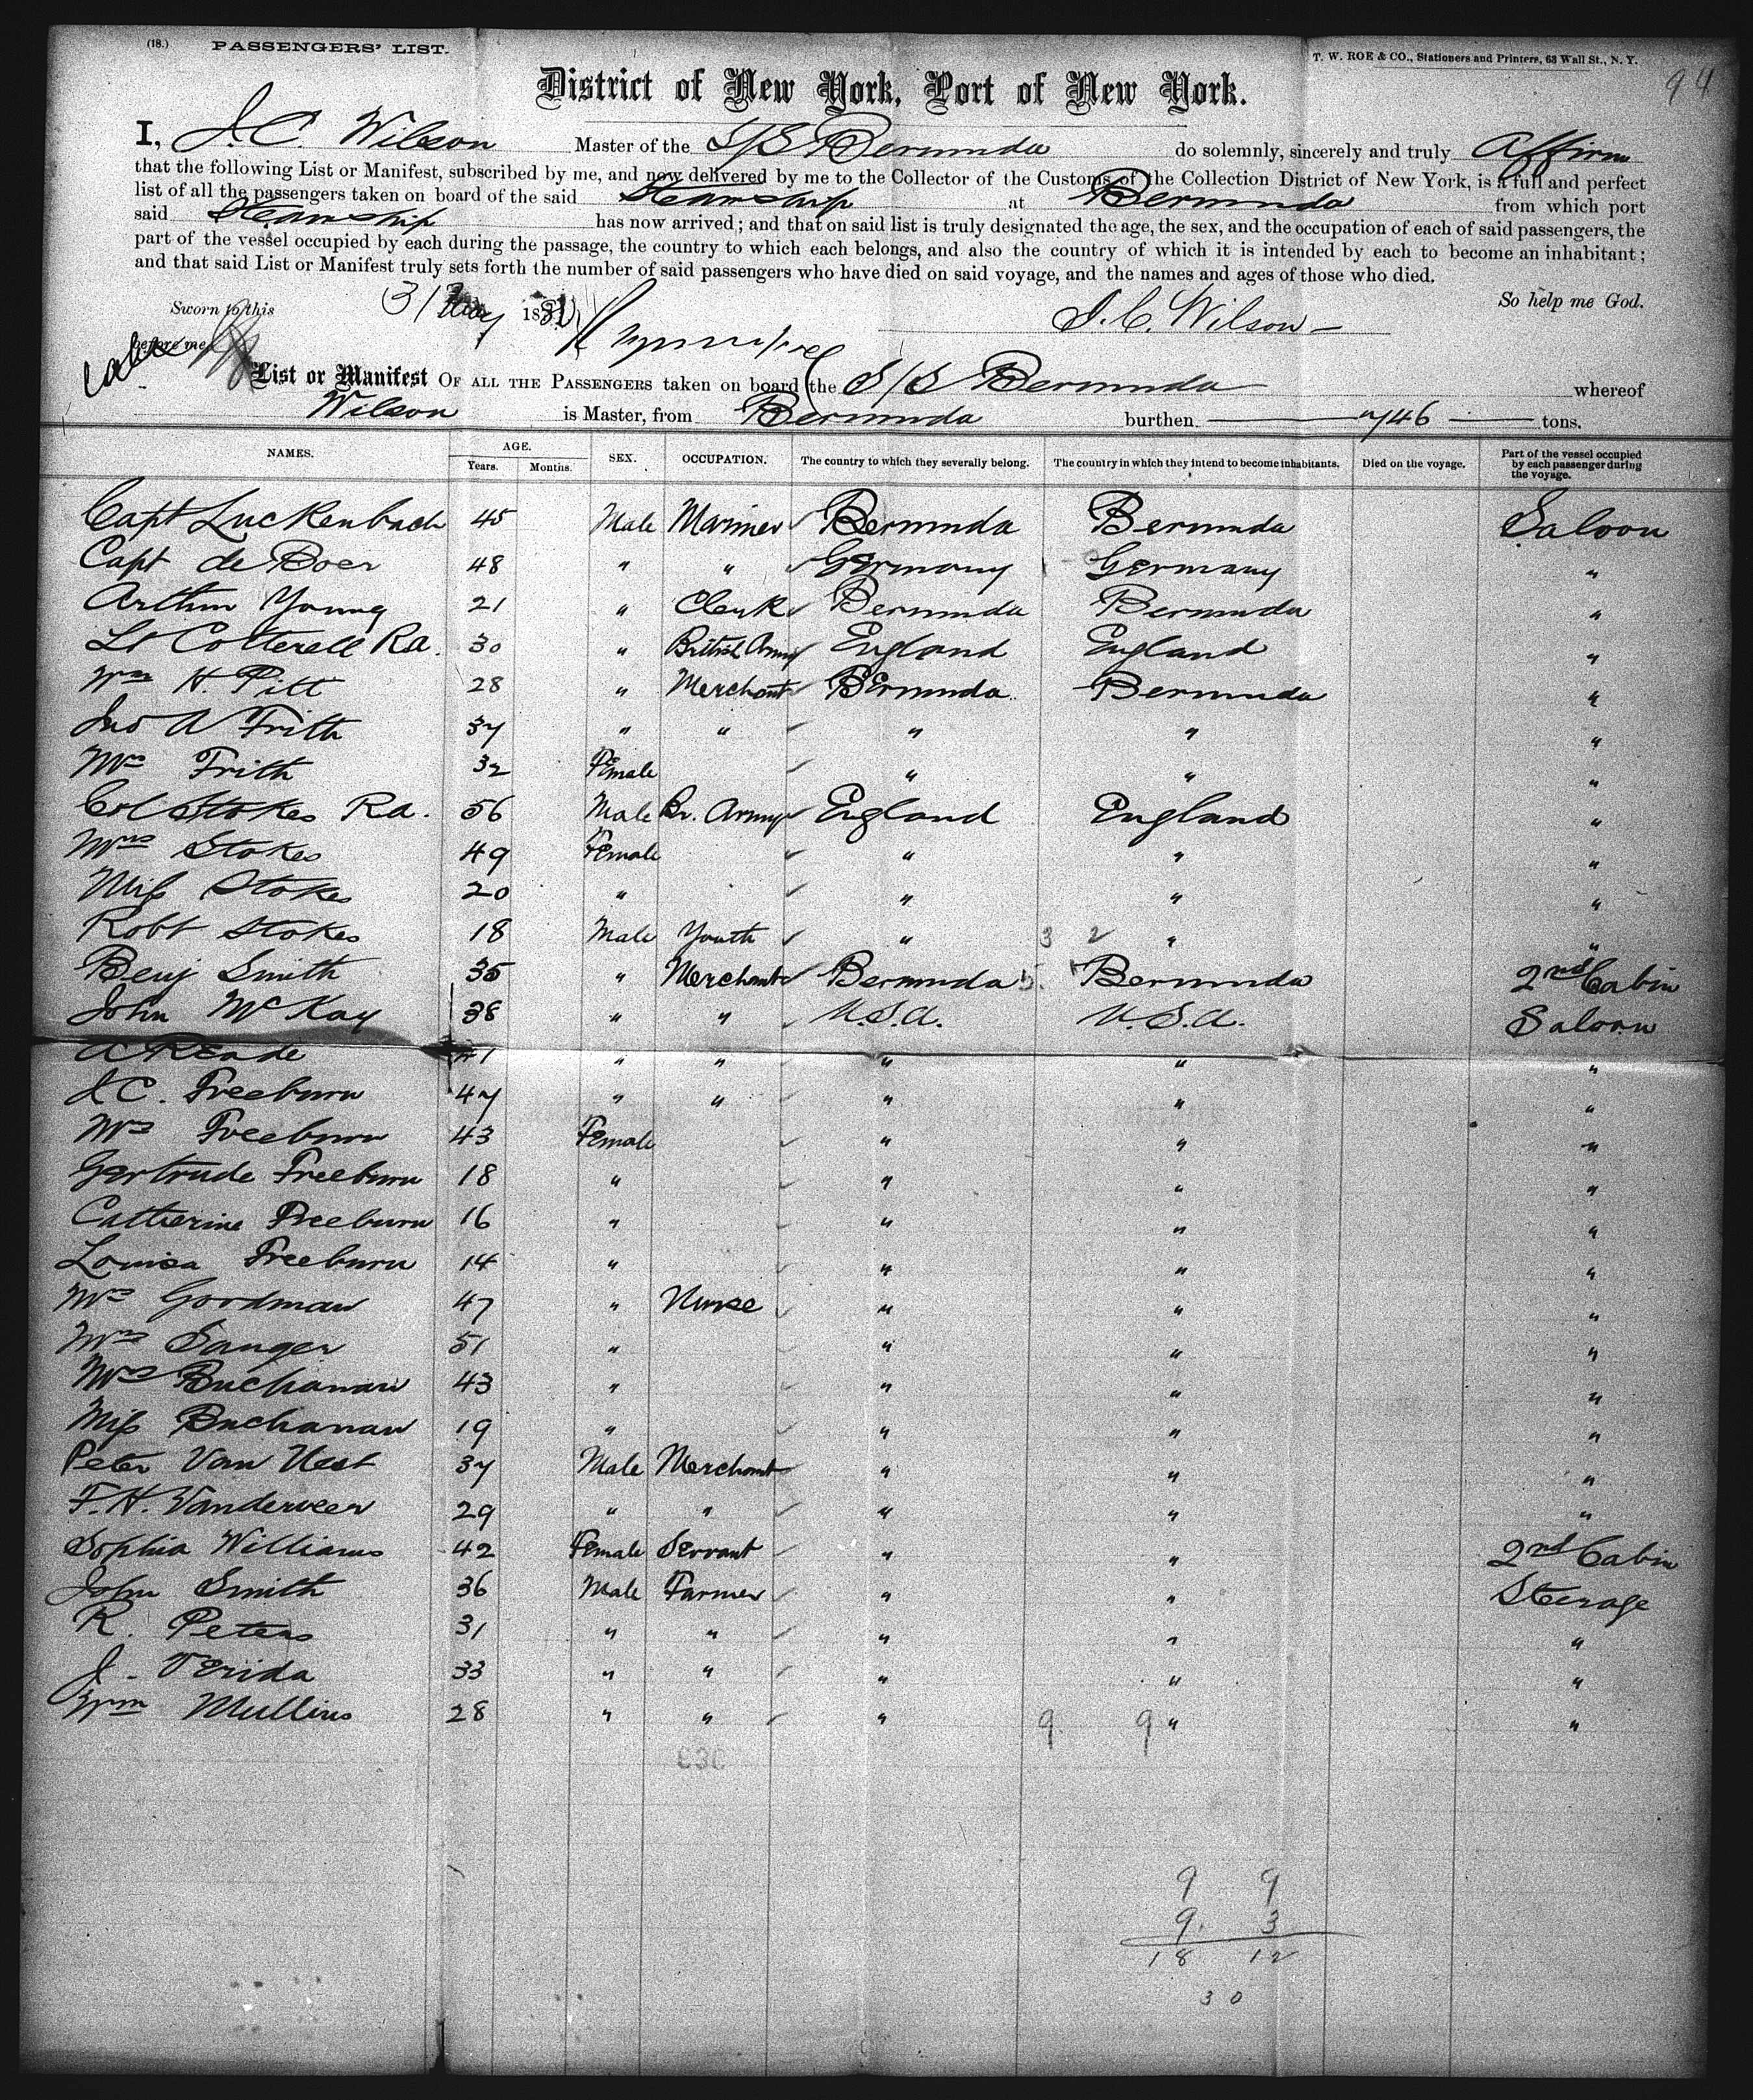 (18.) PASSENGERS' LIST. T. W. ROE & CO., Stationers and Printers, 63 Wall St., N. Y.
94
District of New York, Port of New York.
I, J. C. Wilson Master of the S/S Bermuda do solemnly, sincerely and truly Affirm
that the following List or Manifest, subscribed by me, and now delivered by me to the Collector of the Customs of the Collection District of New York, is a full and perfect
list of all the passengers taken on board of the said Steamship at Bermuda from which port
said Steamship has now arrived; and that on said list is truly designated the age, the sex, and the occupation of each of said passengers, the
part of the vessel occupied by each during the passage, the country to which each belongs, and also the country of which it is intended by each to become an inhabitant;
and that said List or Manifest truly sets forth the number of said passengers who have died on said voyage, and the names and ages of those who died.
So help me God.
Sworn to this 31 May 188 J. C. Wilson
before me
List or Manifest OF ALL THE PASSENGERS taken on board the S/S Bermuda whereof
Wilson is Master, from Bermuda burthen 746 tons.
NAMES. AGE. Years. Months. SEX. OCCUPATION. The country to which they severally belong. The country in which they intend to become inhabitants. Died on the voyage. Part of the vessel occupied by each passenger during the voyage.
Capt Luckenbach 45 Male Mariner Bermuda Bermuda Saloon
Capt de Boer 48 " " Germany Germany "
Arthur Young 21 " Clerk Bermuda Bermuda "
Lt Cotterell Ra. 30 " British Army England England "
Wm H. Pitt 28 " Merchant Bermuda Bermuda "
Jno A Frith 37 " " " " "
Mrs Frith 32 Female " " "
Col Stokes Ra. 56 Male Br. Army England England "
Mrs Stokes 49 Female " " "
Miss Stokes 20 " " " "
Robt Stokes 18 Male Youth " 3 2 " "
Benj Smith 35 " Merchant Bermuda Bermuda 2nd Cabin
John McKay 38 " " U.S.A. U.S.A. Saloon
A Reade 41 " " " " "
J C. Freeburn 47 " " " " "
Mrs Freeburn 43 Female " " "
Gertrude Freeburn 18 " " " "
Catherine Freeburn 16 " " " "
Louisa Freeburn 14 " " " "
Mrs Goodman 47 " Nurse " " "
Mrs Sanger 51 " " " "
Mrs Buchanan 43 " " " "
Miss Buchanan 19 " " " "
Peter Van Nest 37 Male Merchant " " "
F. H. Vanderveer 29 " " " " "
Sophia Williams 42 Female Servant " " 2nd Cabin
John Smith 36 Male Farmer " " Steerage
R. Peters 31 " " " " "
J. Verida 33 " " " " "
Wm Mullins 28 " " " 9 9 " "
9 9
9. 3
18 12
30